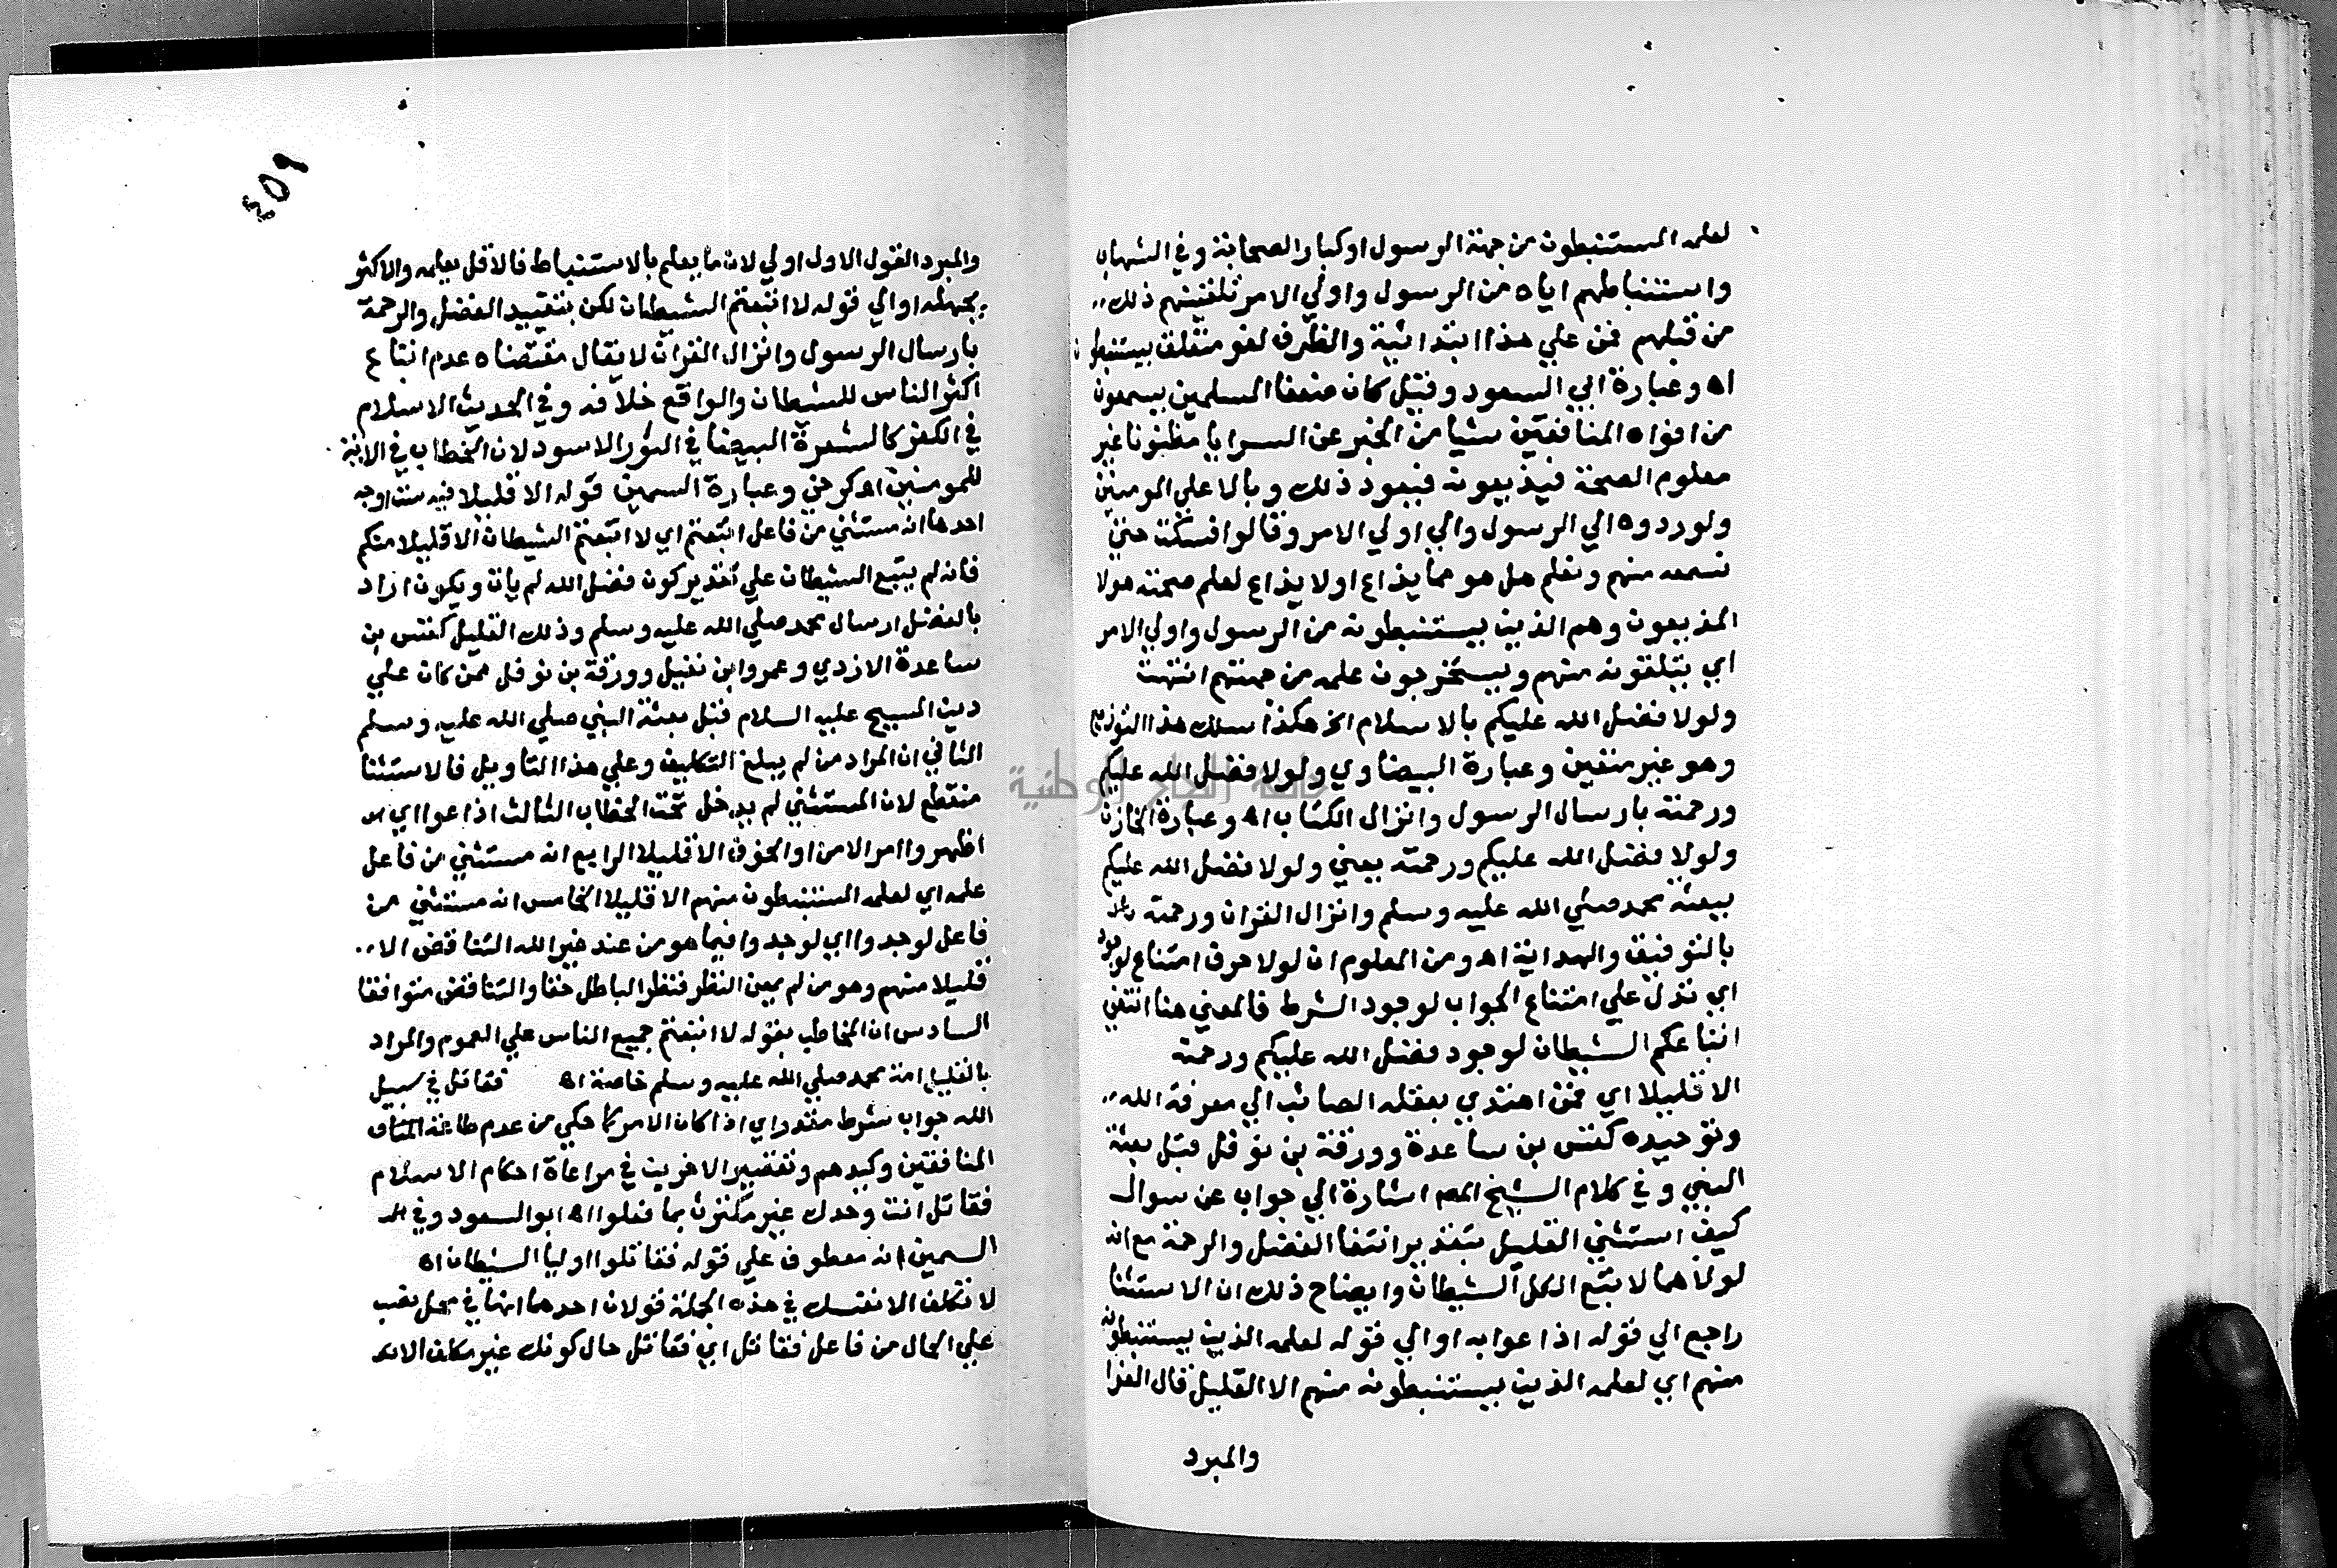 لعلمه المستنبطون من جهة الرسول او كبار الصحابة وفي الشهاب
واستنباطهم اياه من الرسول واولي الامر تلقيهم ذلك
من قبلهم فمن علي هذا ابتدائية والظرف لغو متعلق بيستنبطون
اه وعبارة ابي السعود وقيل كان ضعفا المسلمين يسمعون
من افواه المنافقين شيا من الخبر عن السرايا مظنونا غير
معلوم الصحة فيذيعونه فيعود ذلك وبالا علي المومنين
ولو ردوه الي الرسول والي اولي الامر وقالوا نسكت حتي
نسمعه منهم ونعلم هل هو مما يذاع اولا يذاع لعلم صحته هولا
المذيعون وهم الذين يستنبطونه من الرسول واولي الامر
اي يتلقونه منهم ويستخرجون علمه من جهتهم انتهت
ولولا فضل الله عليكم بالاسلام الخ هكذا سلك هذا التوزيع
وهو غير متعين وعبارة البيضاوي ولولا فضل الله عليكم
ورحمته بارسال الرسول وانزال الكتاب اه وعبارة الخازن
ولولا فضل الله عليكم ورحمته يعني ولولا فضل الله عليكم
ببعثة محمد صلي الله عليه وسلم وانزال القران ورحمته
بالتوفيق والهداية اه ومن المعلوم ان لولا حرف امتناع لوجود
اي تدل علي امتناع الجواب لوجود الشرط فالمعني هنا انتفي
اتباعكم الشيطان لوجود فضل الله عليكم ورحمته
الا قليلا اي ممن اهتدي بعقله الصائب الي معرفة الله
وتوحيده كقس بن ساعدة وورقة بن نوفل قبل بعثة
النبي وفي كلام الشيخ المص اشارة الي جواب عن سوال
كيف استثني القليل بتقدير انتفا الفضل والرحمة مع انه
لولاهما لاتبع الكل الشيطان وايضاح ذلك ان الاستثنا
راجع الي قوله اذاعوا به او الي قوله لعلمه الذين يستنبطونه
منهم اي لعلمه الذين يستنبطونه منهم الا القليل قال الفرا
والمبرد
٤٥٩
والمبرد القول الاول اولي لان ما يعلم بالاستنباط فالاقل يعلمه والاكثر
يجهله او الي قوله لاتبعتم الشيطان لكن بتقييد الفضل والرحمة
بارسال الرسول وانزال القران لا يقال مقتضاه عدم اتباع
اكثر الناس للشيطان والواقع خلافه وفي الحديث الاسلام
في الكفر كالشعرة البيضا في الثور الاسود لان الخطاب في الاية
للمومنين اه كرخي وعبارة السمين قوله الا قليلا فيه ستة اوجه
احدها انه مستثني من فاعل اتبعتم اي لاتبعتم الشيطان الا قليلا منكم
فانه لم يتبع الشيطان علي تقدير كون فضل الله لم يات ويكون اراد
بالفضل ارسال محمد صلي الله عليه وسلم وذلك القليل كقس بن
ساعدة الازدي وعمرو ابن نفيل وورقة بن نوفل ممن كان علي
دين المسيح عليه السلام قبل بعثة النبي صلي الله عليه وسلم
الثاني ان المراد من لم يبلغ التكليف وعلي هذا التاويل فالاستثنا
منقطع لان المستثني لم يدخل تحت الخطاب الثالث اذاعوا اي
اظهروا امر الامن او الخوف الا قليلا الرابع انه مستثني من فاعل
علمه اي لعلمه المستنبطون منهم الا قليلا الخامس انه مستثني من
فاعل لوجدوا اي لوجدوا فيما هو من عند غير الله التناقض الا
قليلا منهم وهو من لم يمعن النظر فنظر الباطل حقا والتناقض متوافقا
السادس ان المخاطب بقوله لاتبعتم جميع الناس علي العموم والمراد
بالقليل امة محمد صلي الله عليه وسلم خاصة اه فقاتل في سبيل
الله جواب شرط مقدر اي اذا كان الامر كما حكي من عدم طاعة
المنافقين وكيدهم وتقصير الاخرين في مراعاة احكام الاسلام
فقاتل انت وحدك غير مكترث بما فعلوا اه ابو السعود وفي
السمين انه معطوف علي قوله فقاتلوا اوليا الشيطان اه
لا تكلف الا نفسك في هذه الجملة قولان احدهما انها في محل نصب
علي الحال من فاعل فقاتل اي فقاتل حال كونك غير مكلف الا